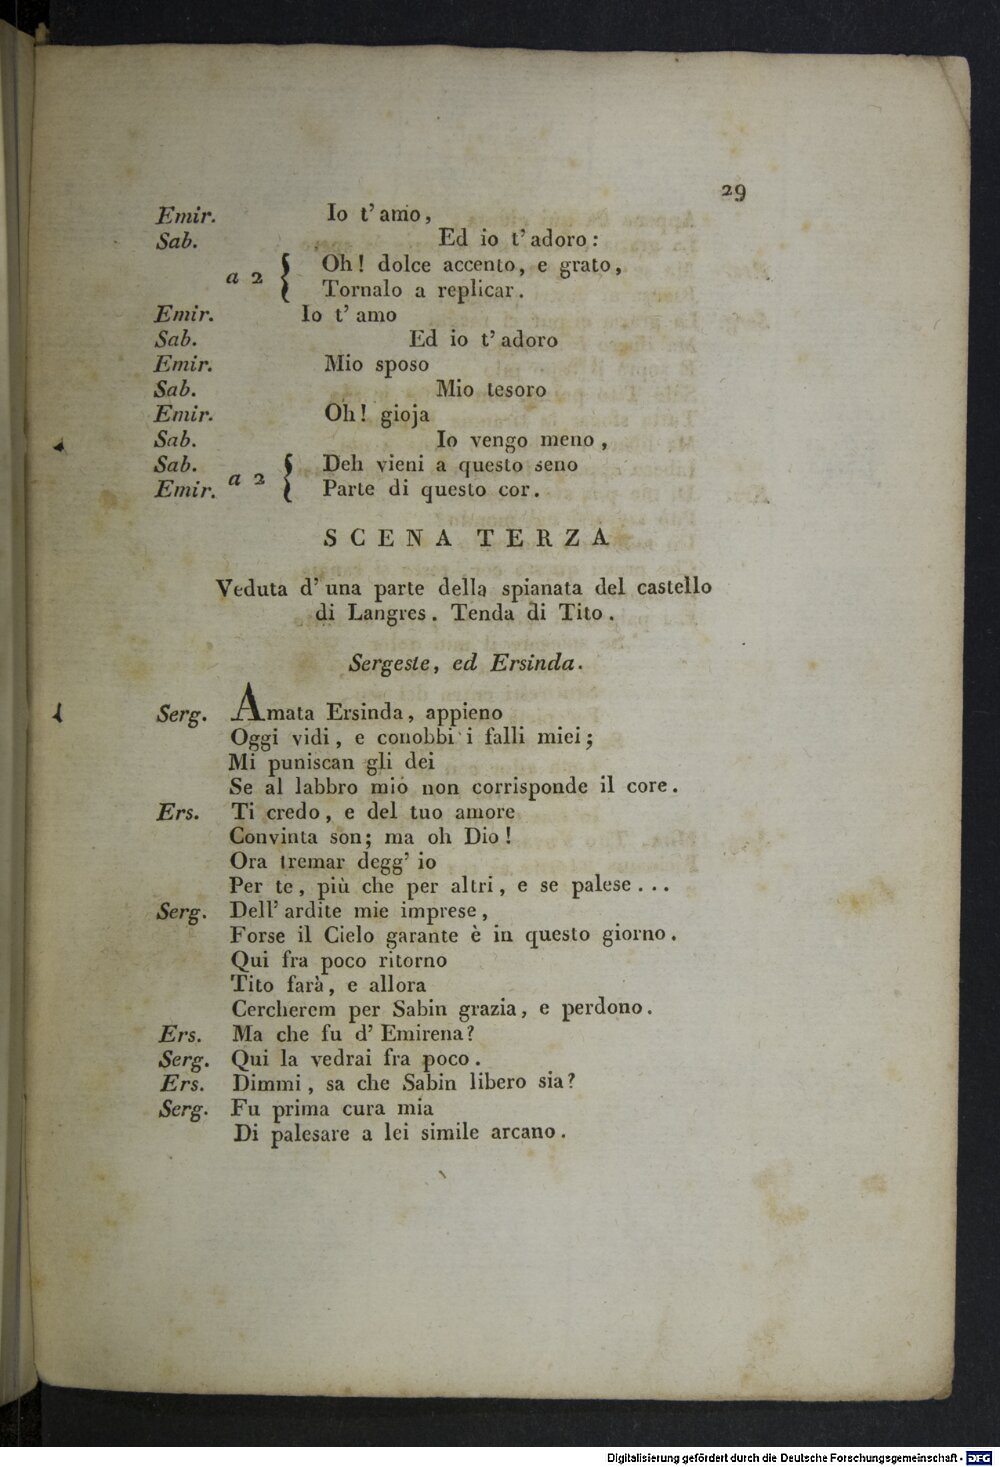 29
Emir. Io t' amo,
Sab. Ed io t' adoro:
a 2 { Oh! dolce accento, e grato,
Tornalo a replicar.
Emir. Io t' amo
Sab. Ed io t' adoro
Emir. Mio sposo
Sab. Mio tesoro
Emir. Oh! gioja
Sab. Io vengo meno,
Sab. a 2 { Deh vieni a questo seno
Emir. Parte di questo cor.
SCENA TERZA
Veduta d' una parte della spianata del castello
di Langres. Tenda di Tito.
Sergeste, ed Ersinda.
Serg. Amata Ersinda, appieno
Oggi vidi, e conobbi i falli miei;
Mi puniscan gli dei
Se al labbro mio non corrisponde il core.
Ers. Ti credo, e del tuo amore
Convinta son; ma oh Dio!
Ora tremar degg' io
Per te, più che per altri, e se palese...
Serg. Dell' ardite mie imprese,
Forse il Cielo garante è in questo giorno.
Qui fra poco ritorno
Tito farà, e allora
Cercherem per Sabin grazia, e perdono.
Ers. Ma che fu d' Emirena?
Serg. Qui la vedrai fra poco.
Ers. Dimmi, sa che Sabin libero sia?
Serg. Fu prima cura mia
Di palesare a lei simile arcano.
Digitalisierung gefördert durch die Deutsche Forschungsgemeinschaft - DFG